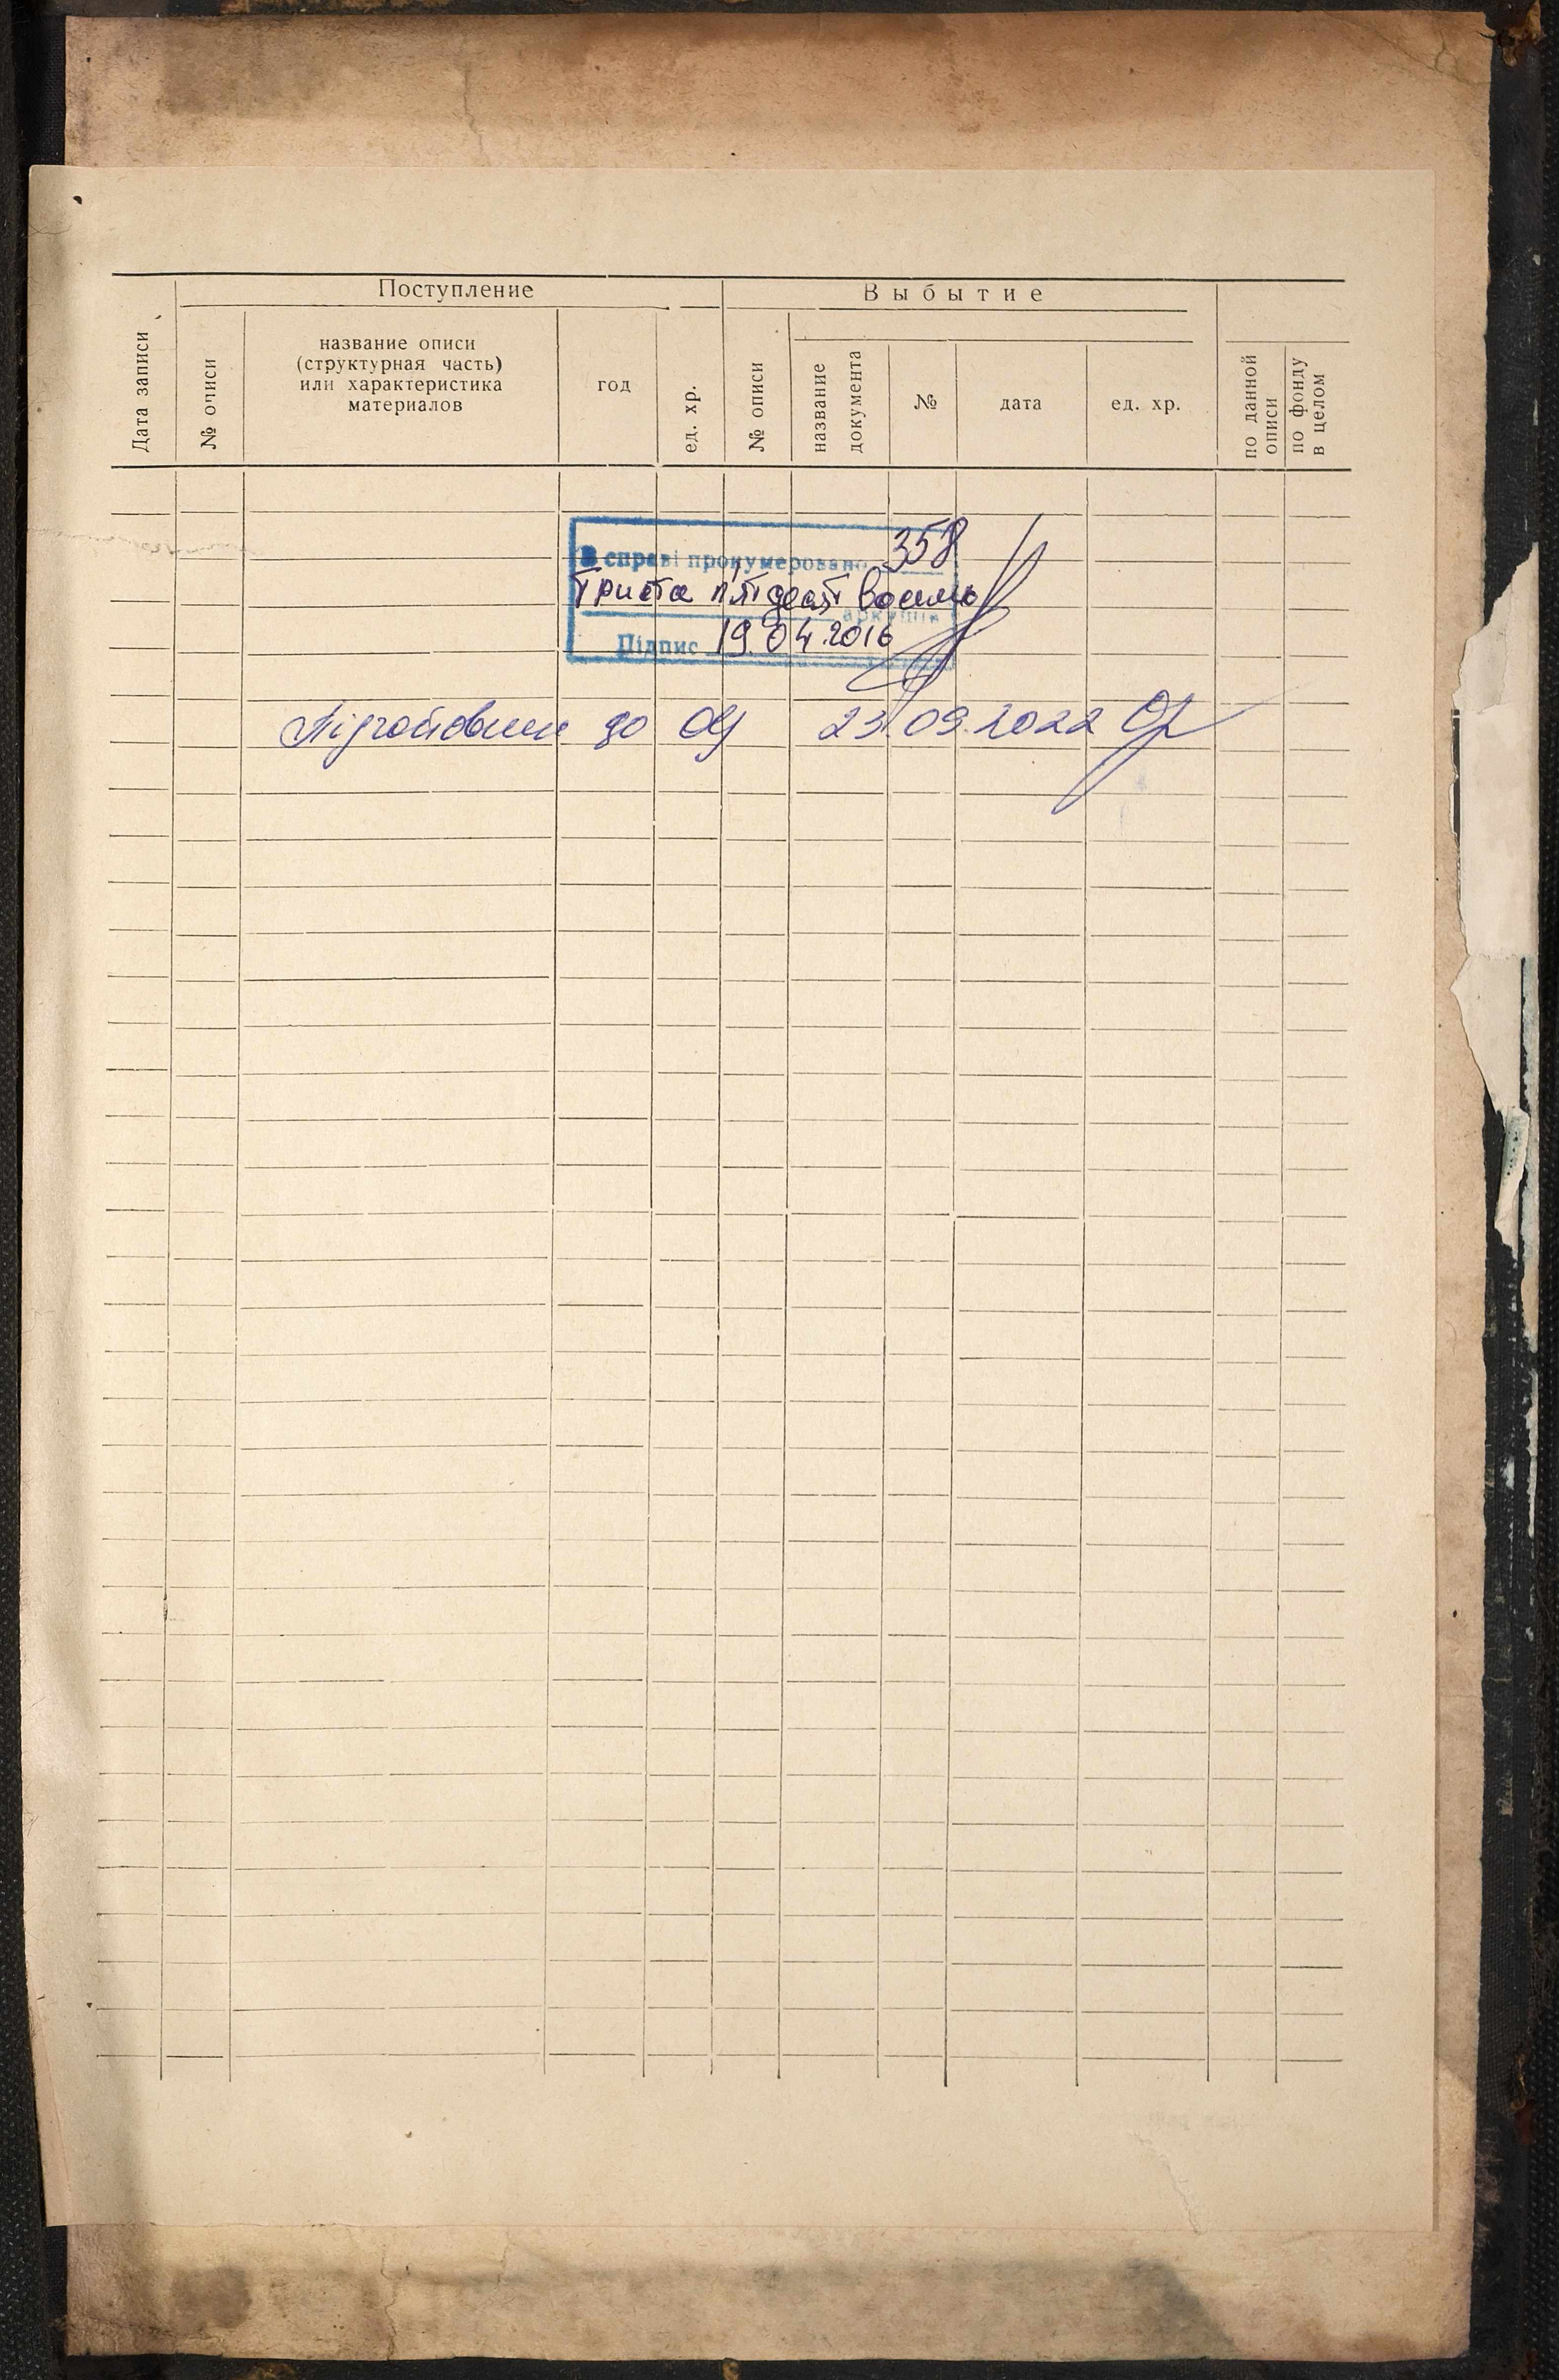 Поступление
Выбытие
Дата записи
№ описи
название описи
(структурная часть)
или характеристика
материалов
год
ед. хр.
№ описи
название
документа
№
дата
ед. хр.
по данной
описи
по фонду
в целом
В справі пронумеровано 358
Триста п'ятдесят восемь
аркушів
Підпис 19.04.2016
до 23.09.2022